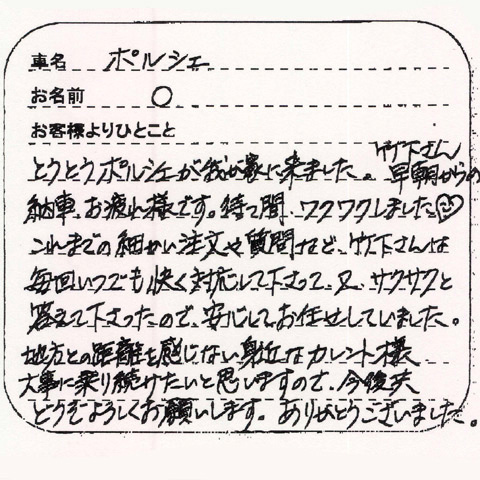 車名 ポルシェ
お名前 ○
お客様よりひとこと
とうとうポルシェが我が家に来ました。竹下さん早朝からの
納車、お疲れ様です。待つ間、ワクワクしました
これまでの細かい注文や質問など、竹下さんは
毎回いつでも快く対応して下さって、又、サクサクと
答えて下さったので、安心してお任せしていました。
地方との距離を感じない身近なカレント様
大事に乗り続けたいと思いますので、今後共
どうぞよろしくお願いします。ありがとうございました。